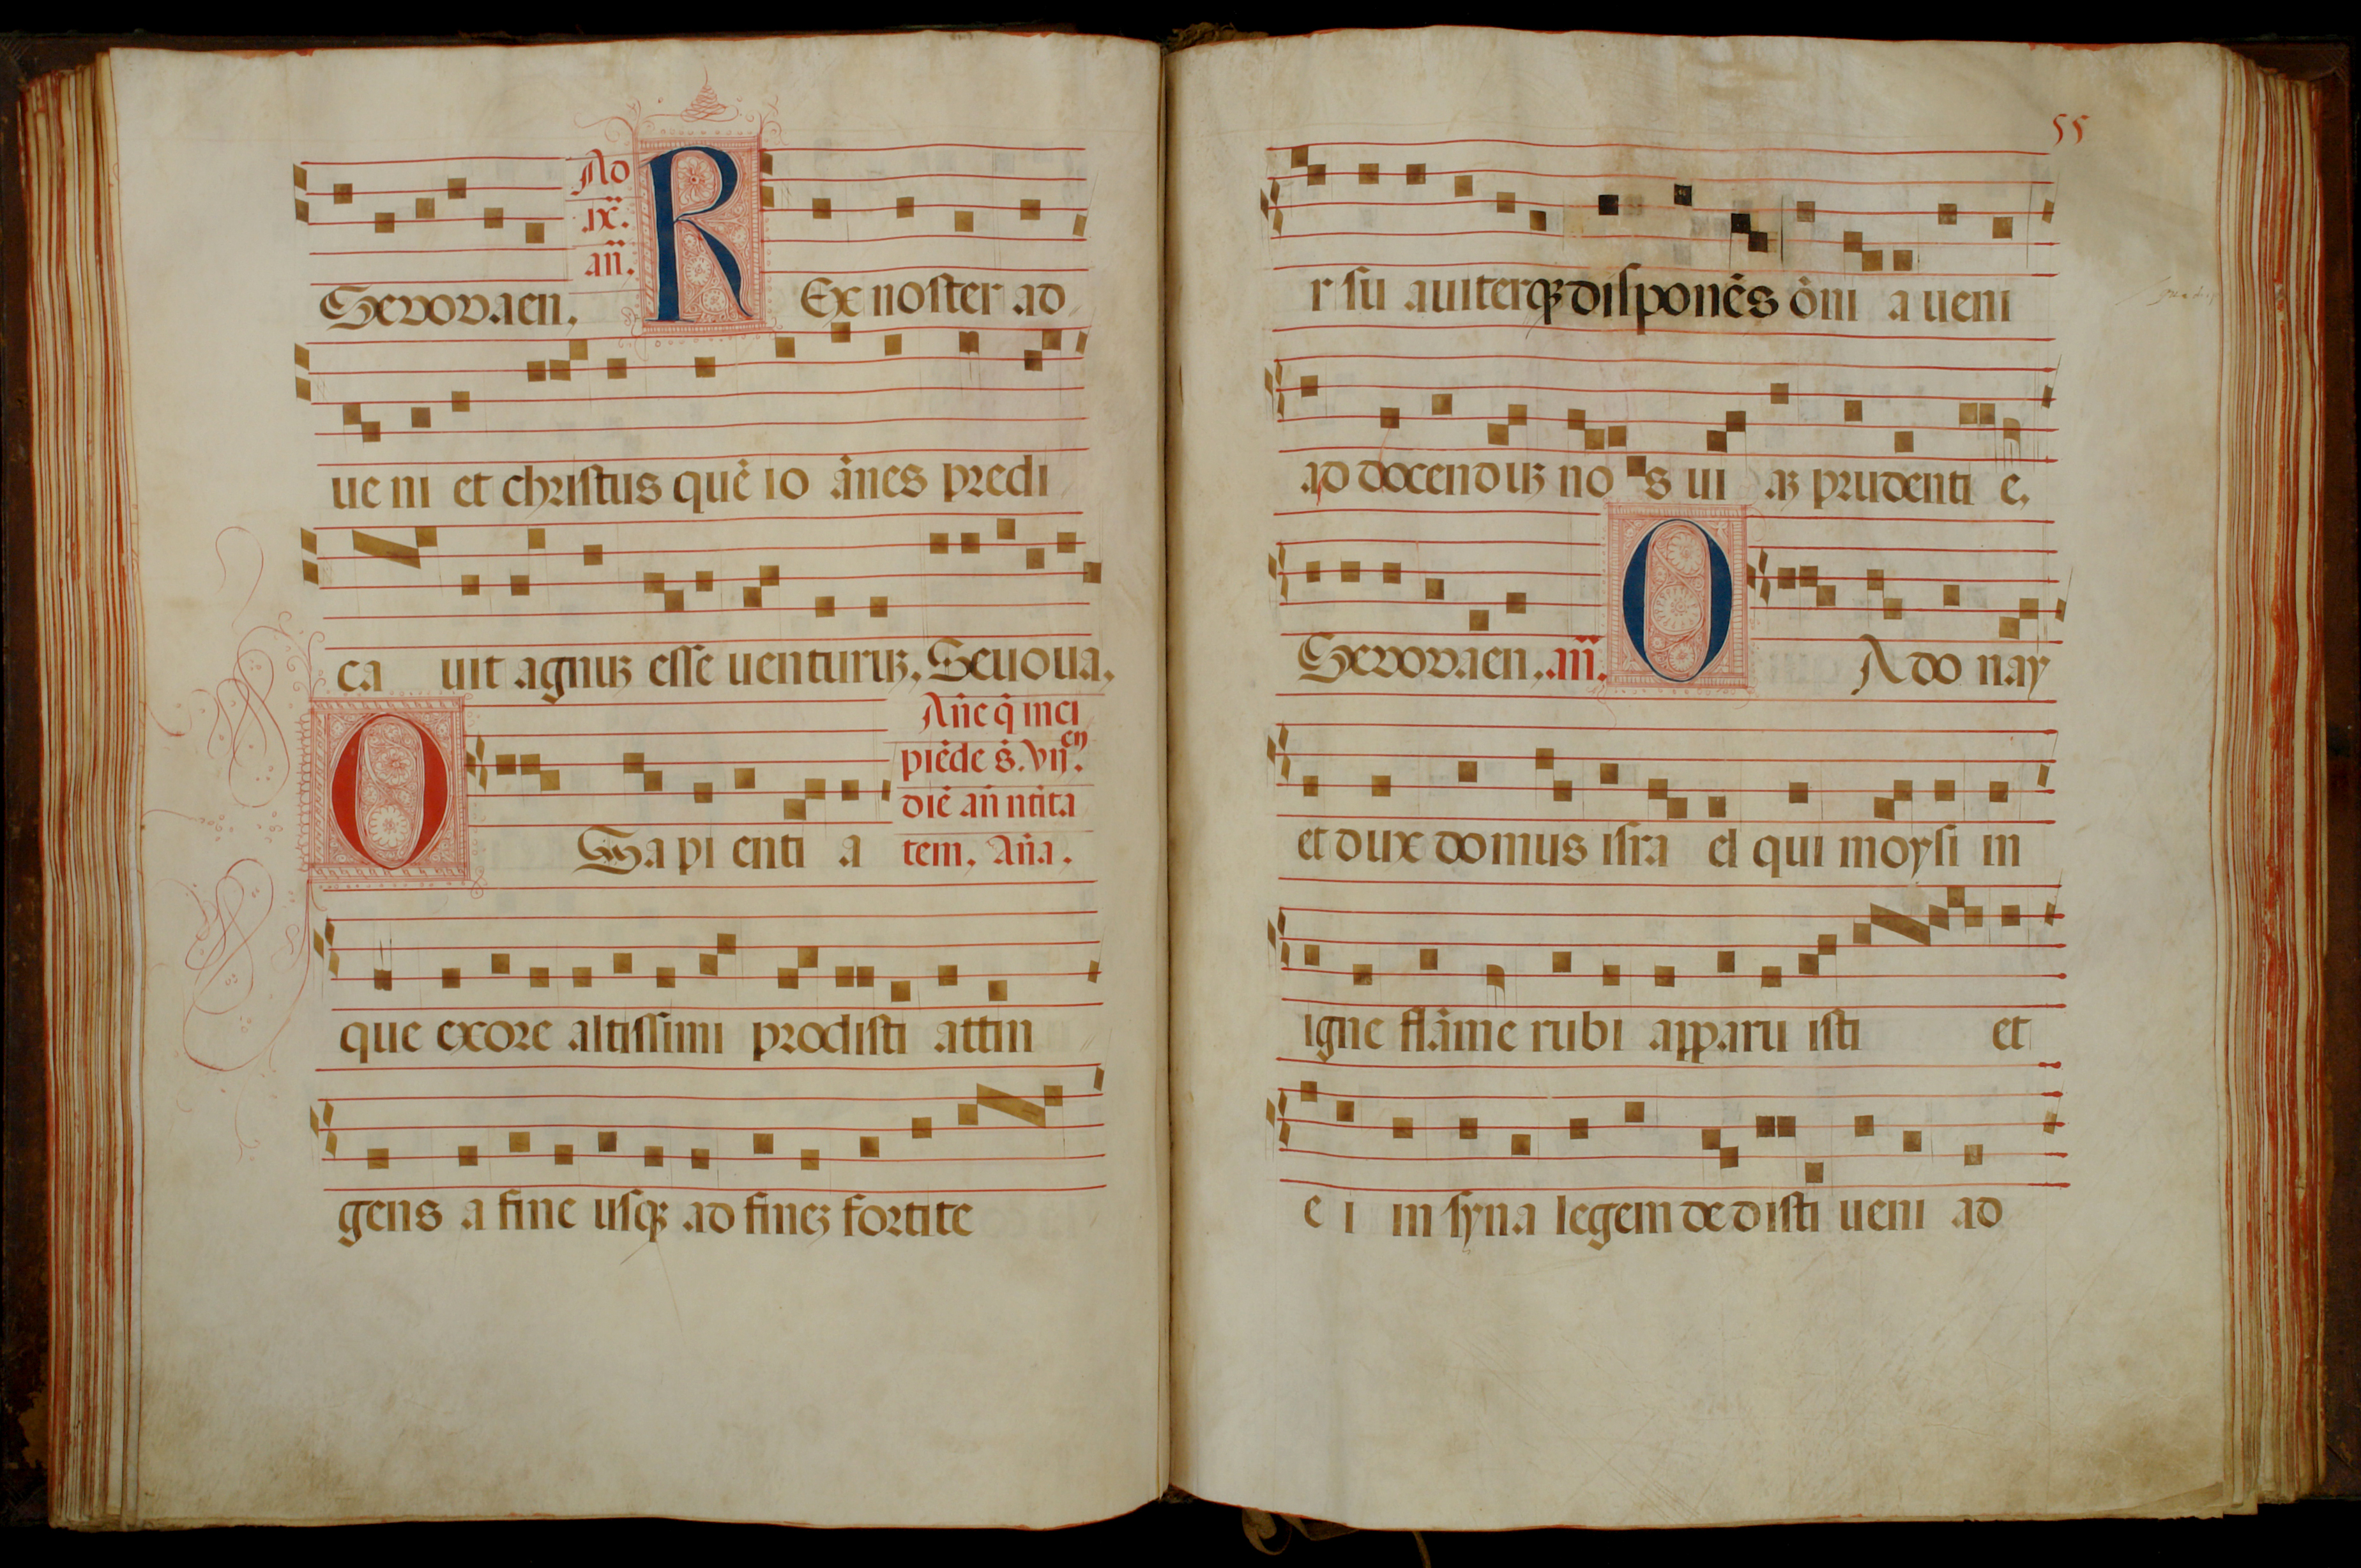 Sevovaen, Ad .ix̃. añ. REx noster ad
ueni et christus quē io ānes predi
ca uit agnuꝫ esse uenturuꝫ. Seuoua,
O Sapi enti a
Añe q̄ inci
piēde s̄. vijᵉⁿ.
diē añ ntīta
tem, Añа.
que ex ore altissimi prodisti attin
gens a fine usqꝫ ad fineꝫ fortite
55
r su auiterqꝫ disponēs ōni a ueni
ad docenduꝫ no s ui aꝫ prudenti e,
Sevovaen,. añ. O Ado nay
et dux domus isra el qui moysi in
igne flāme rubi apparu isti et
e i in syna legem dedisti ueni ad